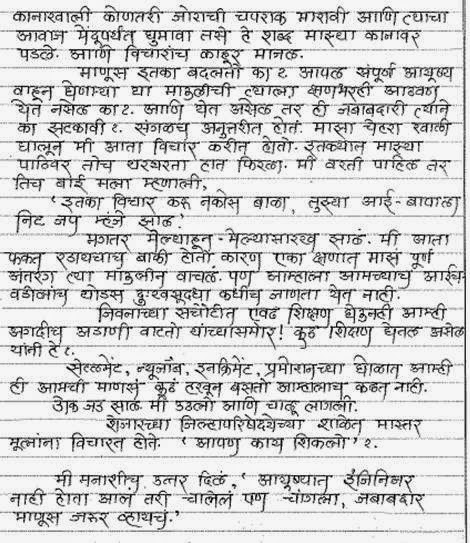 कानाखाली कोणतरी जोराची चपराक मारावी आणि त्याचा
आवाज मेंदूपर्यंत घुमावा तसे हे शब्द माझ्या कानावर
पडले. आणि विचारांच काहूर मानलं.
माणूस इतका बदलतो का?. आपलं संपूर्ण आयुष्य
वाहून घेणाऱ्या या माऊलीची त्याला क्षणभरही आठवण
येत नसेल का?. आणि येत असेल तर ही जबाबदारी त्याने
का झटकावी ?. सगळंच अनुत्तरीत होतं. माझा चेहरा खाली
घालून मी आता विचार करीत होतो. इतक्यात माझ्या
पाठिवर तोच थरथरता हात फिरला. मी वरती पाहिलं तर
तिच बाई मला म्हणाली,
' इतका विचार करू नकोस बाळा, तुझ्या आई-बापाला
निट जप म्हंजे झालं.'
मगतर मेल्याहून-मेल्यासारखं झालं. मी आता
फक्त रडायचाच बाकी होतो कारण एका क्षणात माझं पूर्ण
अंतरंग त्या माऊलीनं वाचलं. पण आम्हाला आमच्याच आई-
वडीलांच थोडसं दुःखसुद्धा कधीच जाणता येत नाही.
जिवनाच्या संचोटीत एवढं शिक्षण घेऊनही आम्ही
अगदीच अडाणी वाटतो यांच्यासमोर! कुठं शिक्षण घेतलं असेल
यांनी हे ?.
सेटलमेंट, न्यूजॉब, इनक्रिमेंट, प्रमोशनच्या घोळात आम्ही
ही आमची माणसं कुठं हरवून बसतो आम्हालाच कळत नाही.
डोकं जड झालं मी उठलो आणि चालू लागलो.
शेजारच्या जिल्हापरिषदेच्या शाळेत मास्तर
मूलांना विचारत होते. ' आपण काय शिकलो' ?.
मी मनाशीच उत्तर दिलं, ' आयुष्यात इंजिनिअर
नाही होता आलं तरी चालेलं पण चांगला, जबाबदार
माणूस जरूर व्हायचं.'